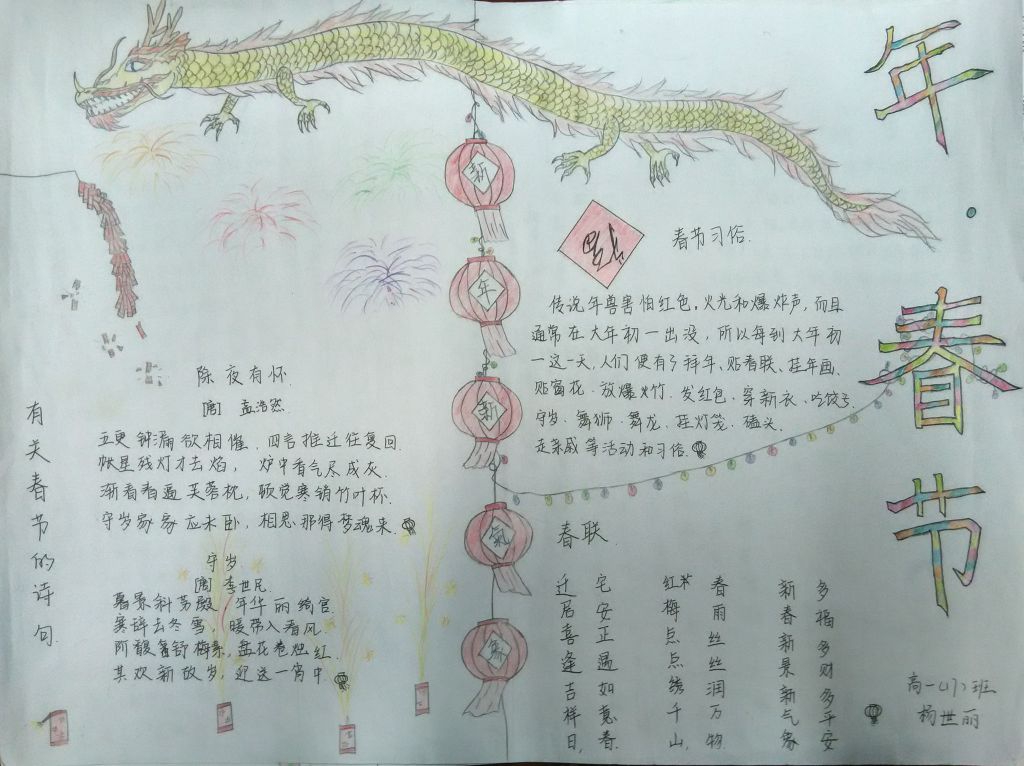 年·春节
新
年
新
氣
象
春节习俗.
传说年兽害怕红色,火光和爆炸声,而且
通常在大年初一出没,所以每到大年初
一这一天,人们便有了拜年、贴春联、挂年画、
贴窗花、放爆竹、发红包、穿新衣、吃饺子、
守岁、舞狮、舞龙、挂灯笼、磕头、
走亲戚等活动和习俗.
有关春节的诗句
除夜有怀.
[唐] 孟浩然.
五更钟漏欲相催,四气推迁往复回.
帐里残灯才去焰,炉中香气尽成灰.
渐看春逼芙蓉枕,顿觉寒销竹叶杯.
守岁家家应未卧,相思那得梦魂来.
守岁
[唐] 李世民
暮景斜芳殿,年华丽绮宫.
寒辞去冬雪,暖带入春风.
阶馥舒梅素,盘花卷烛红.
共欢新故岁,迎送一宵中.
春联
迁居喜逢吉祥日,
宅安正遇如意春.
红梅点点绣千山,
春丽丝丝润万物.
新春新景新气象
多福多财多平安
高一(17)班
杨世丽